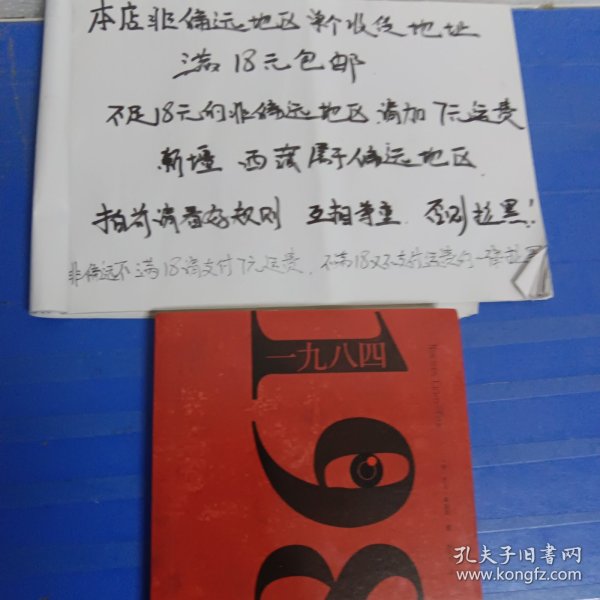 本店非偏远地区单个收货地址
满18元包邮
不足18元的非偏远地区请加7元运费
新疆 西藏属于偏远地区
拍前请看好规则 互相尊重 否则拉黑!
非偏远不满18请支付7元运费,不满18又不支付运费的一律拉黑
一九八四
198
Nineteen Eighty-Four
孔夫子旧书网
www.kongfz.com